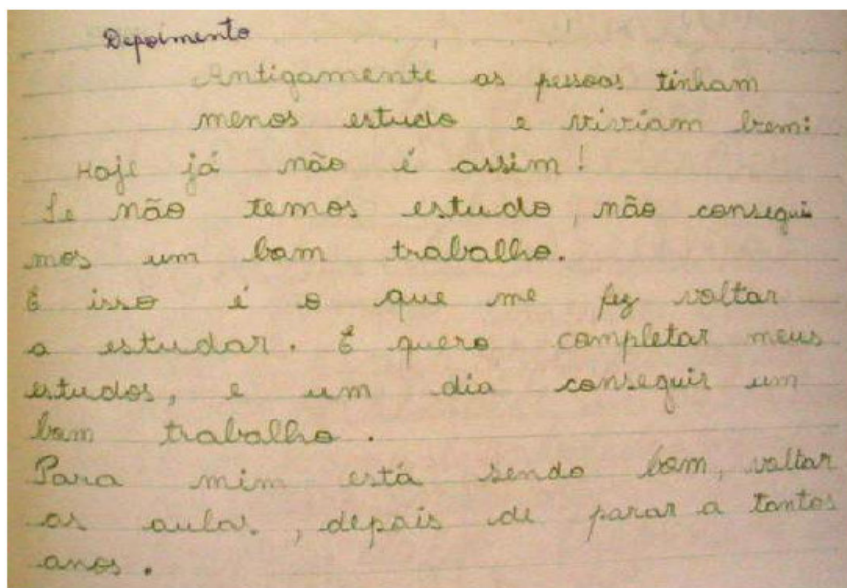 Depoimento
Antigamente as pessoas tinham
menos estudo e viviam bem:
Hoje já não é assim!
Se não temos estudo, não consegui
mos um bom trabalho.
E isso é o que me fez voltar
a estudar. E quero completar meus
estudos, e um dia conseguir um
bom trabalho.
Para mim está sendo bom, voltar
as aulas, depois de parar a tantos
anos.